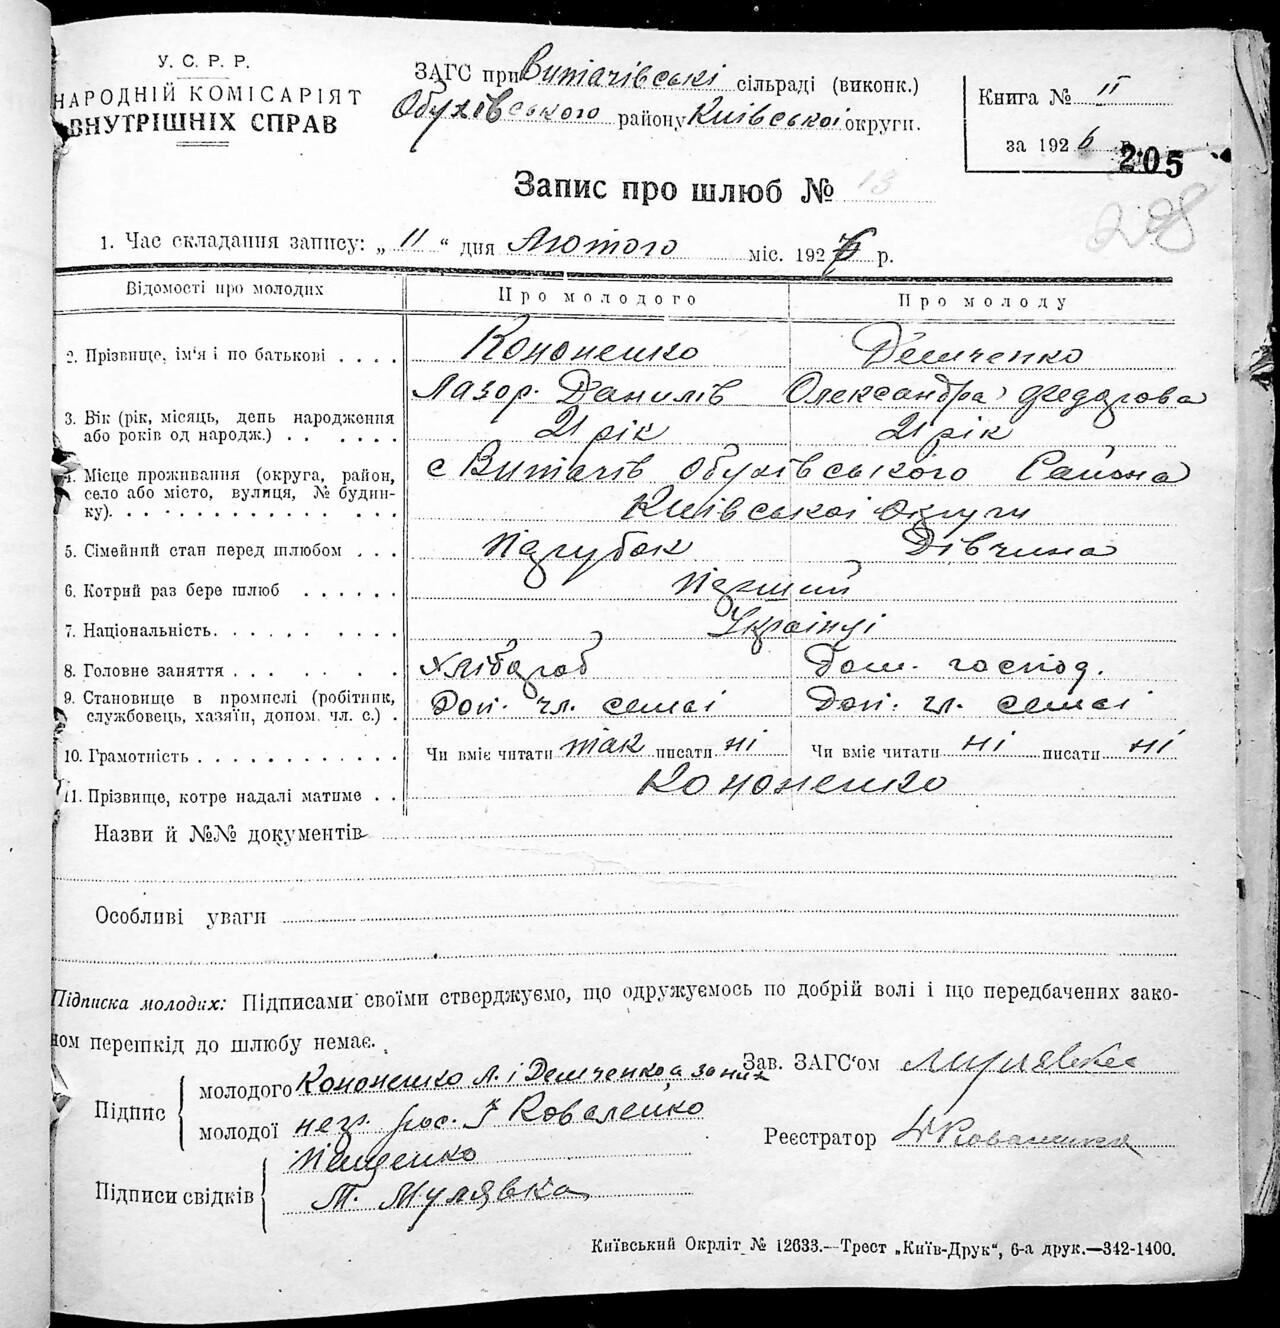 У. С. Р. Р.
НАРОДНІЙ КОМІСАРІЯТ
ВНУТРІШНІХ СПРАВ
ЗАГС при Витачівські сільраді (виконк.)
Обухівського району Київської округи.
Книга № II
за 1926 р.
205
208
Запис про шлюб № 13
1. Час складання запису: „ 11 “ дня Лютого міс. 1926 р.
Відомості про молодих Про молодого Про молоду
2. Прізвище, ім'я і по батькові . . . . Кононенко Демченко
Лазор. Данилів Олександра Федорова
3. Вік (рік, місяць, день народження
або років од народж.) . . . . . . 21 рік 21 рік
4. Місце проживання (округа, район,
село або місто, вулиця, № будин-
ку). с Витачів Обухівського Района
Київської Округи
5. Сімейний стан перед шлюбом . . . Парубок Дівчина
6. Котрий раз бере шлюб . . . . . . Перший
7. Національність. . . . . . . . . Українці
8. Головне заняття . . . . . . . Хлібороб Дом. господ.
9. Становище в промислі (робітник,
службовець, хазяїн, допом. чл. с.) . Доп. чл. семьї Доп. чл. семьї
10. Грамотність . . . . . . . . . . . . Чи вміє читати так писати ні Чи вміє читати ні писати ні
11. Прізвище, котре надалі матиме . . Кононенко
Назви й №№ документів
Особливі уваги
Підписка молодих: Підписами своїми стверджуємо, що одружуємось по добрій волі і що передбачених зако-
ном перешкід до шлюбу немає.
Підпис молодого Кононенко Л. і Демченко а за них
молодої нег. рос. Коваленко
Підписи свідків Пещенко
Т. Мулявка
Зав. ЗАГС'ом Мулявка
Реєстратор
Київський Окрліт № 12633.—Трест „Київ-Друк“, 6-а друк.—342-1400.